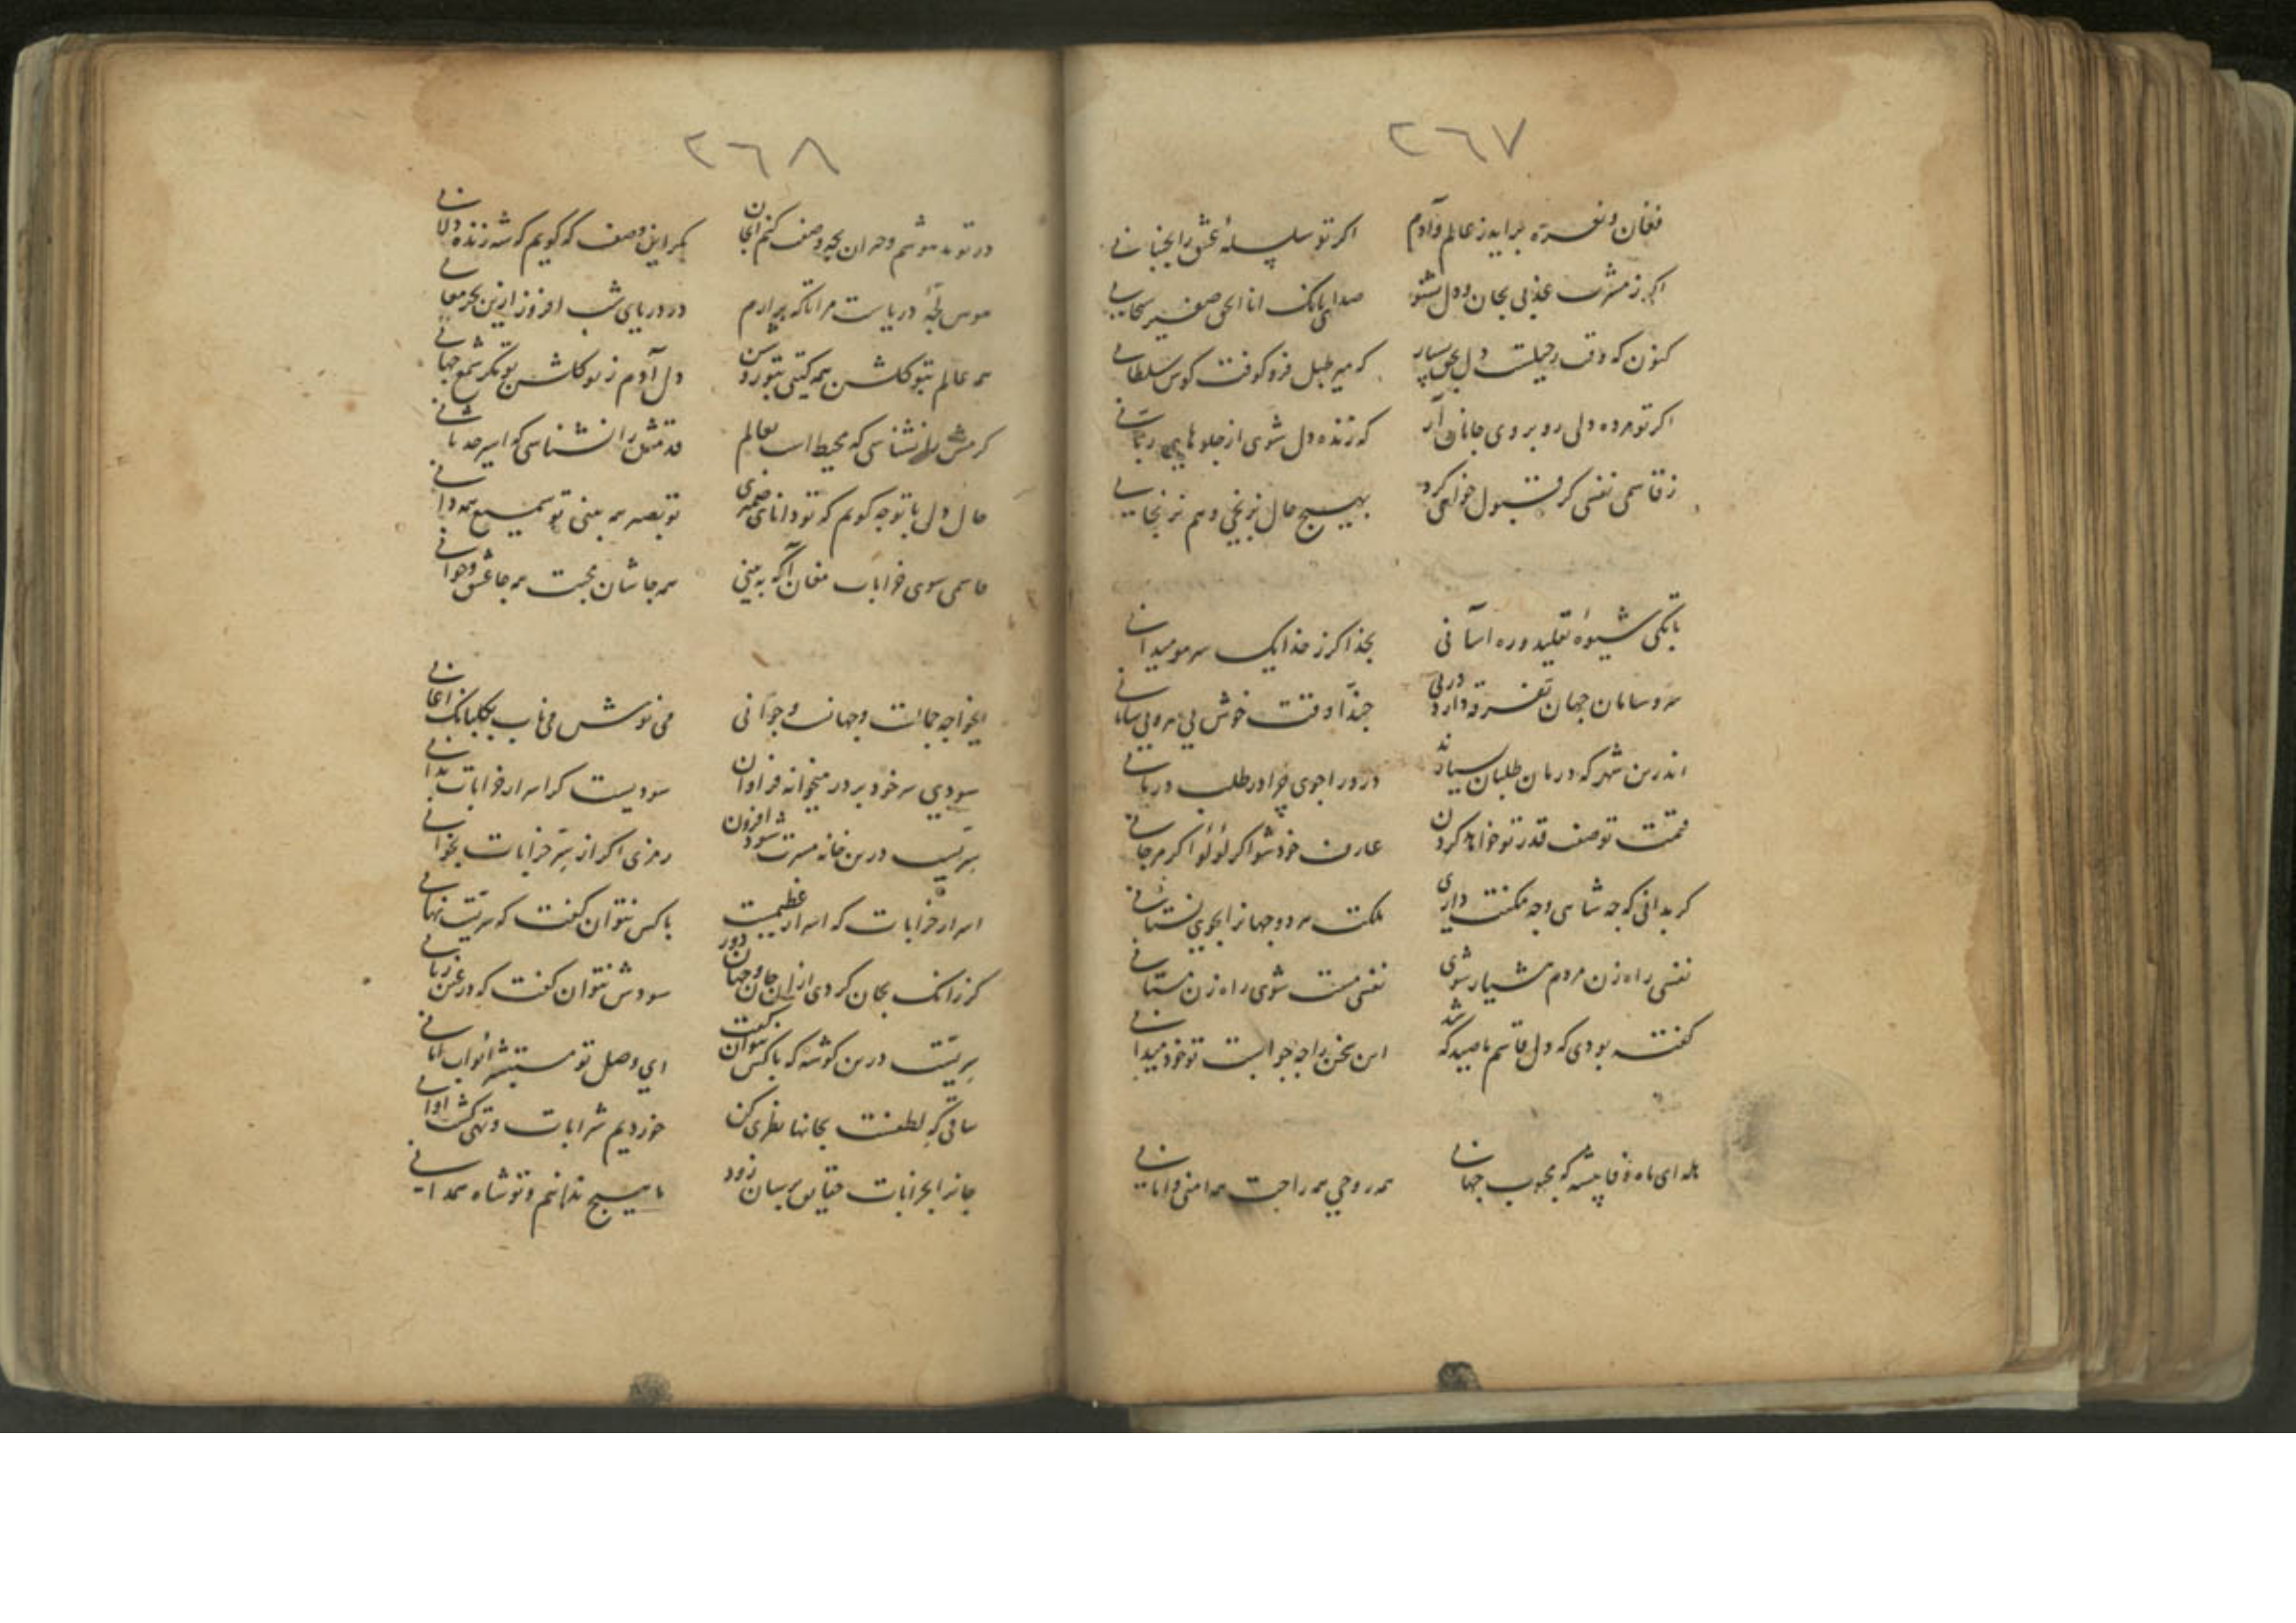 ٢٦٧
فغان و نعره برآید ز عالم و آدم
اگر تو سلسلهٔ عشق را بجنبانی
اگر ز مشرب عذبی بجان و دل بشنو
صدای بانک انا الحق صفیر سبحانی
کنون که وقت رحیلست دل بحق بسپار
که میر طبل فرو کوفت کوس سلطانی
اکر تو مرده دلی رو بروی جانان آر
که زنده دل شوی از جلوهای ربانی
ز قاسمی نفسی کر قبول خواهی کرد
بهیچ حال نرنجی و هم نرنجانی
تا بکی شیوهٔ تقلید و ره آسانی
بخدا کر ز خدا یک سر مو میدانی
سر و سامان جهان تفرقه دارد در پی
حبذا وقت خوش بی سر و بی سامانی
اندرین شهر که درمان طلبان بسیارند
درد را جوی چرا در طلب درمانی
قیمت توصف قدر تو خواهد کردن
عارف خود شو اکر لؤلؤ اکر مرجانی
کر بدانی که چه شاهی و چه مکنت داری
ملکت هر دو جهانرا بجوی نستانی
نفسی راه زن مردم هشیار شوی
نفسی مست شوی راه زن مستانی
کفته بودی که دل قاسم ما صید که شد
این سخن را چه جوابست تو خود میدانی
هله ای ماه وفا پیشه که محبوب جهانی
همه روحی همه راحت همه امنی و امانی
٢٦٨
در تو مدهوشم و حیران بچه وصفت کنم ای جان
بکر این وصف که کویم که شه زنده دلانی
هوس لجهٔ دریاست مرا تا که برآرم
در دریای شب افروز ازین بحر معانی
همه عالم بتو کلشن همه کیتی بتو روشن
دل آدم ز تو کلشن تو مکر شمع جهانی
کرمش را نشناسی که محیط است بعالم
قدمش را نشناسی که اسیر حدثانی
حال دل با تو چه کویم که تو دانای ضمیری
تو بصیر همه بینی تو سمیع همه دانی
قاسمی سوی خرابات مغان آ که ببینی
همه جا شان محبت همه جا عشق و جوانی
ایخواجه جمالست و جهانست و جوانی
می نوش می ناب بکلبانک اغانی
سودی سر خود بر در میخانه فراوان
سودیست کر اسرار خرابات بدانی
سریست درین خانه مسرت شود افزون
رمزی اکر از سر خرابات بخوانی
اسرار خرابات که اسرار عظیمست
با کس نتوان کفت که سریست نهانی
کر زانک بجان کردی ازان جان و جهان دور
سودش نتوان کفت که در عین زیانی
سریست درین کوشه که با کس نتوان کفت
ای وصل تو مستبشر ابواب امانی
ساقی که لطفست بجانها نظری کن
خوردیم شرابات و تهی کشت اوانی
جانرا بخرابات حقایق برسان زود
ما هیچ ندانیم و تو شاه همه دانی